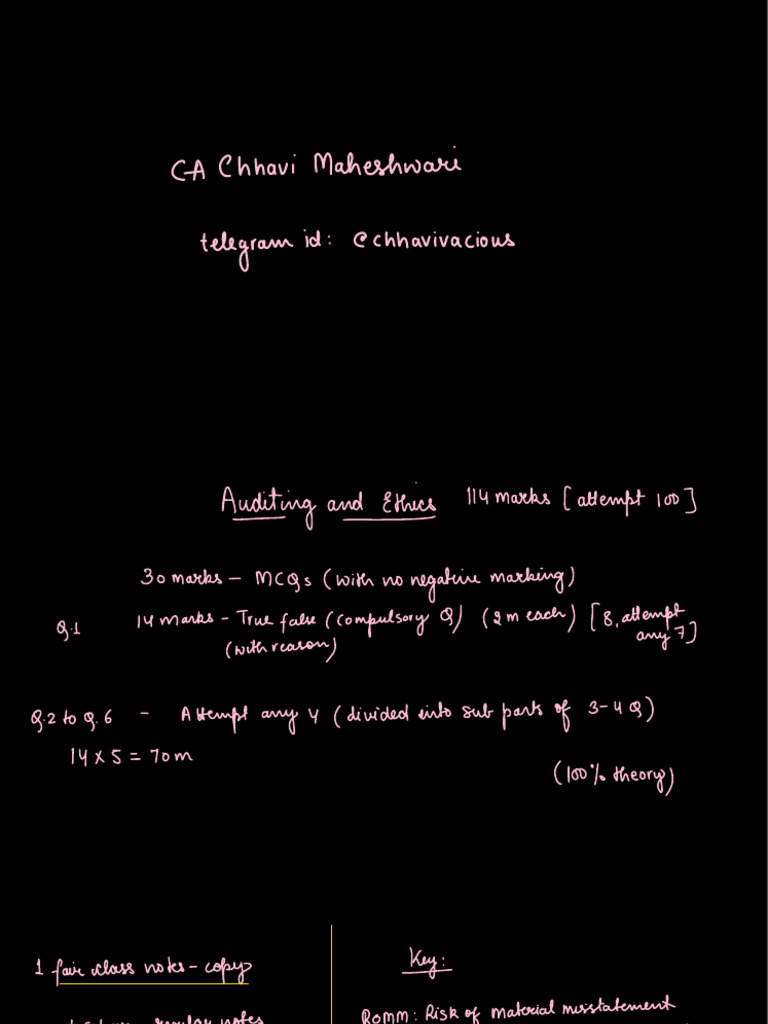 CA Chhavi Maheshwari
telegram id: @chhavivacious
Auditing and Ethics 114 marks [attempt 100]
30 marks - MCQs (with no negative marking)
Q.1 14 marks - True false (compulsory Q) (2 m each) [8, attempt any 7]
(with reason)
Q.2 to Q.6 - Attempt any 4 (divided into sub parts of 3-4 Q)
14 x 5 = 70 m
(100% theory)
1 fair class notes - copy
regular notes
Key:
ROMM: Risk of material misstatement